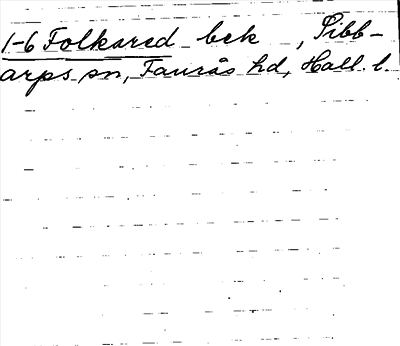 1-6 Folkared bek , Sibb-
arps sn, Faurås hd, Hall. l.